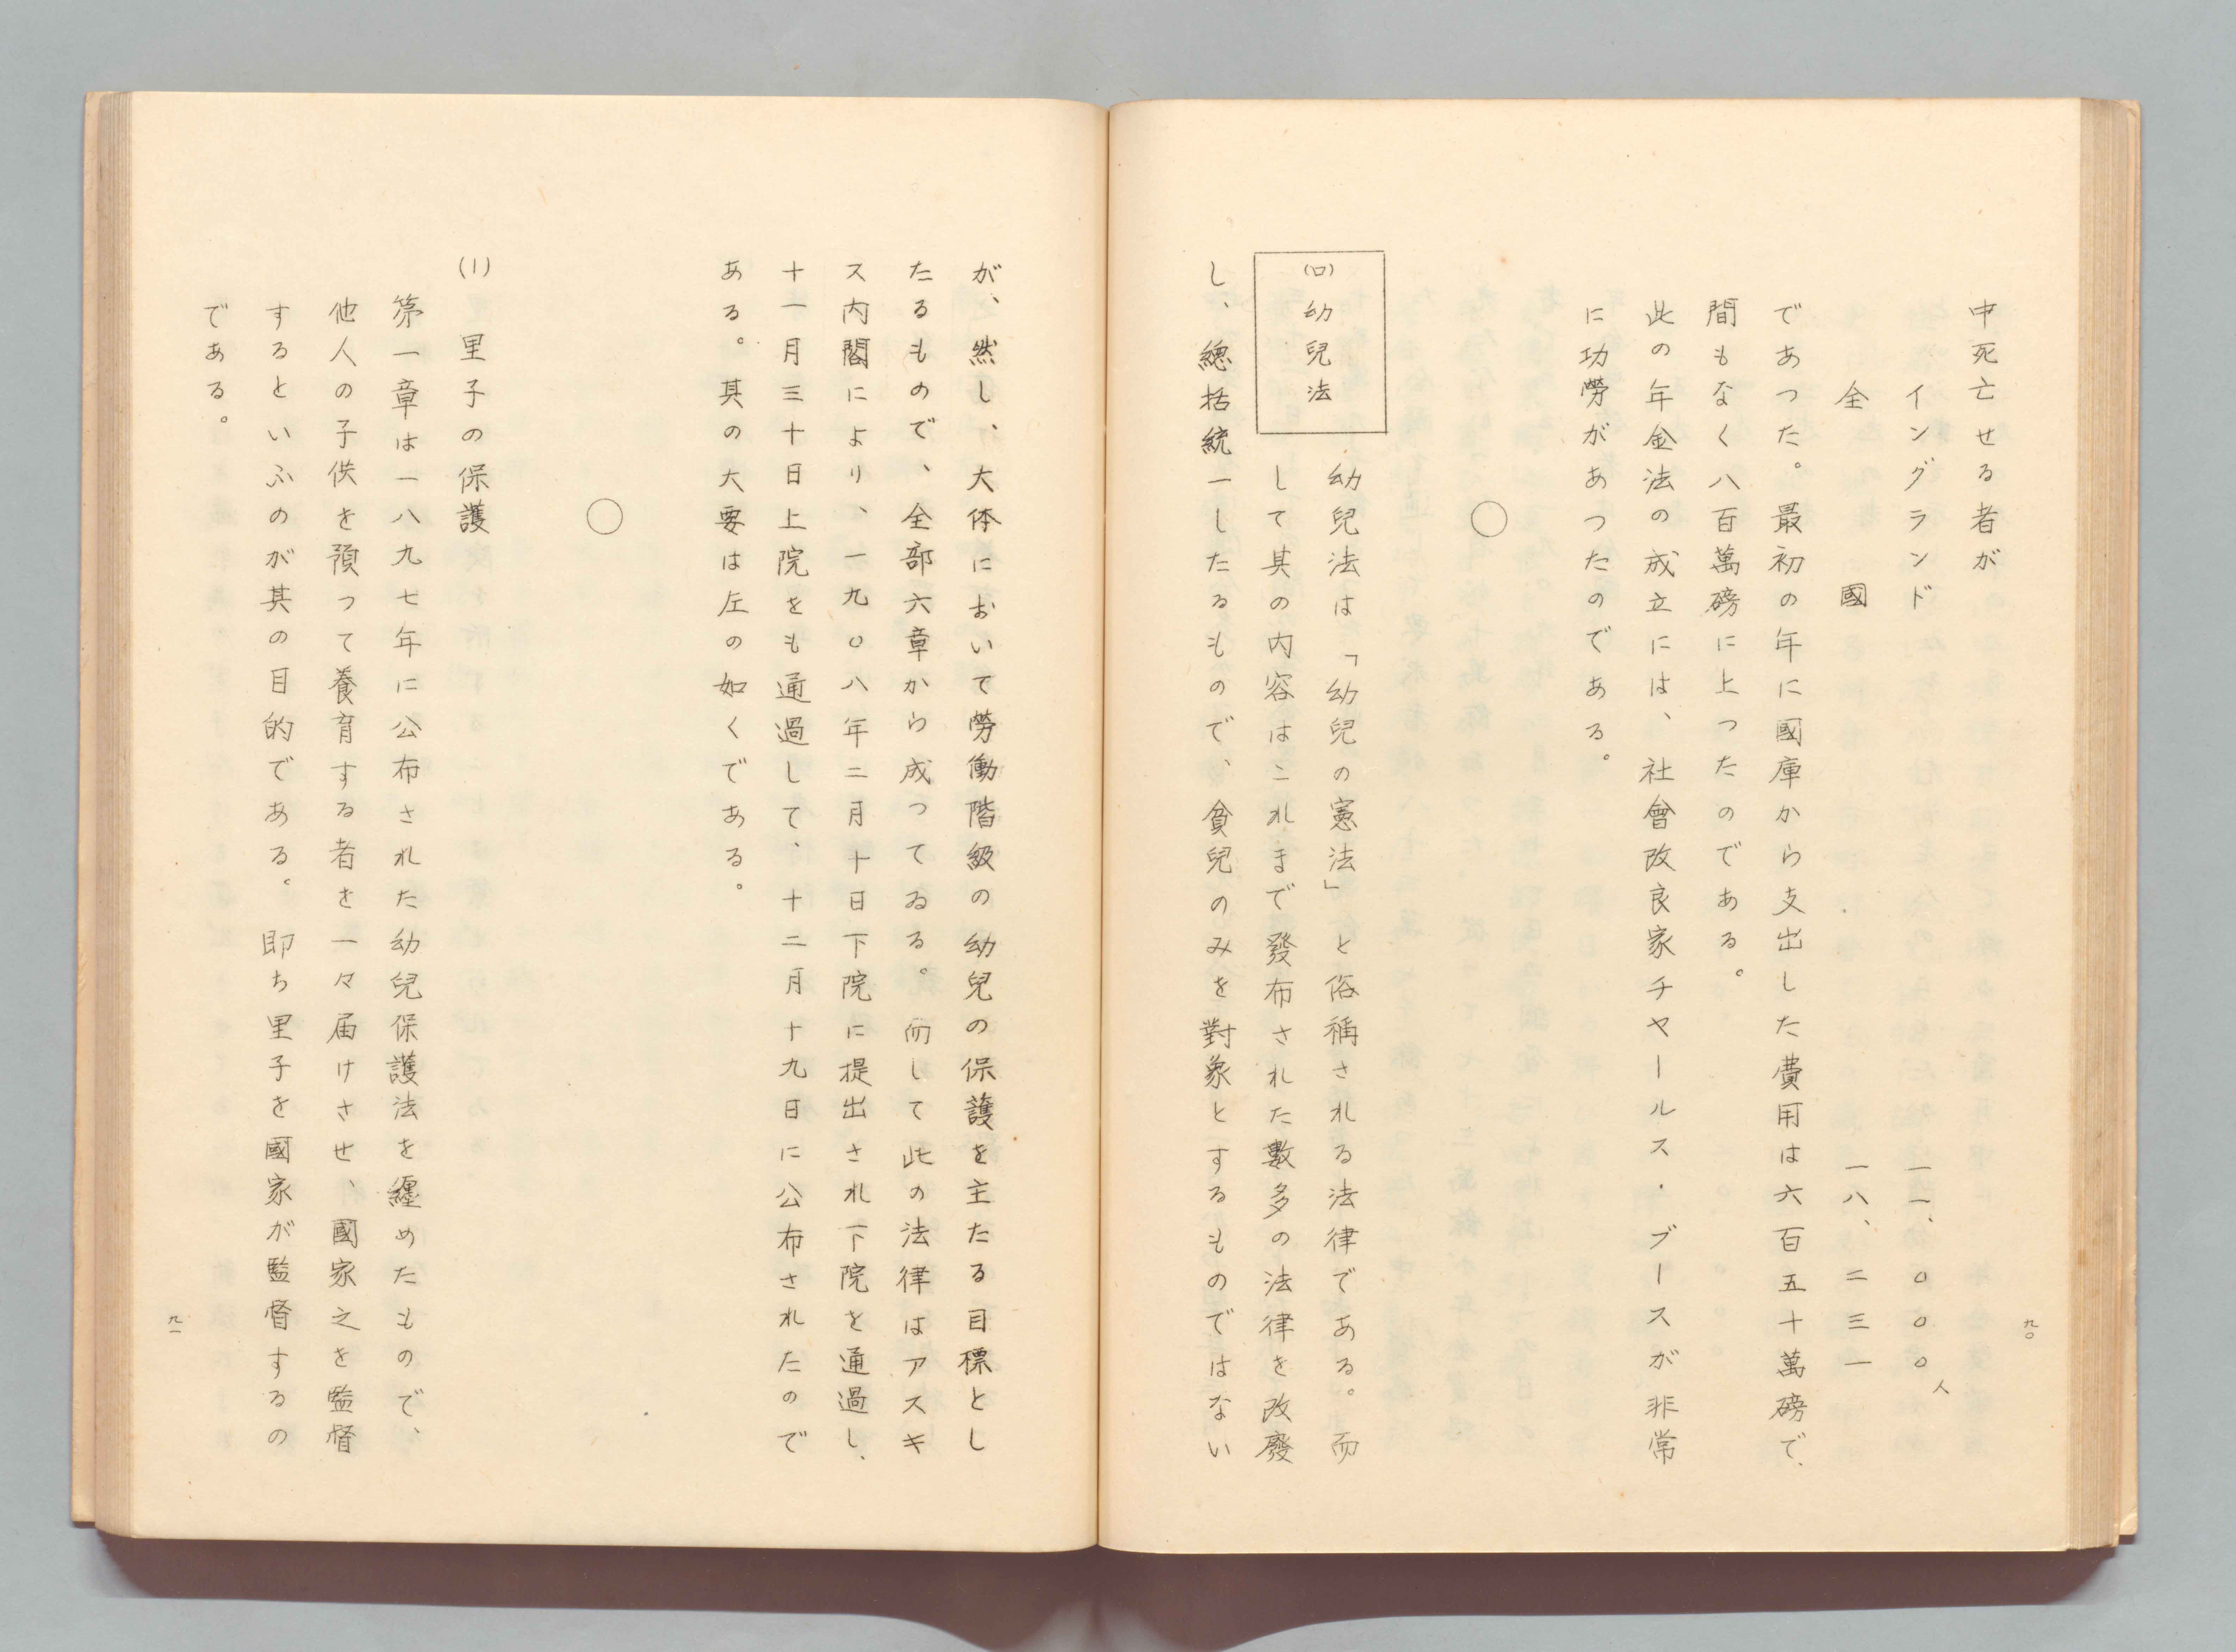 中死亡せる者が
イングランド 一一、〇〇〇人
全國 一八、二三一
であつた。最初の年に國庫から支出した費用は六百五十萬磅で、
間もなく八百萬磅に上つたのである。
此の年金法の成立には、社會改良家チヤールス・ブースが非常
に功勞があつたのである。
○
(ロ)幼兒法
幼兒法は「幼兒の憲法」と俗稱される法律である。而
して其の内容はこれまで發布された數多の法律を改廢
し、總括統一したるもので、貧兒のみを對象とするものではない
九〇
が、然し、大体において勞働階級の幼兒の保護を主たる目標とし
たるもので、全部六章から成つてゐる。而して此の法律はアスキ
ス内閣により、一九〇八年二月十日下院に提出され下院を通過し、
十一月三十日上院をも通過して、十二月十九日に公布されたので
ある。其の大要は左の如くである。
○
(1)里子の保護
第一章は一八九七年に公布された幼兒保護法を纒めたもので、
他人の子供を預つて養育する者を一々届けさせ、國家之を監督
するといふのが其の目的である。即ち里子を國家が監督するの
である。
九一